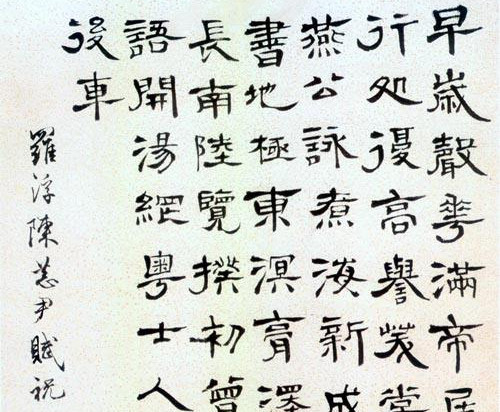 早歲聲華滿帝居
行処復高譽茂
燕公詠煮海新成
書地極東溟膏澤
長南陸覽揆初曾
語開湯網粵士人
後車
羅浮陳恭尹賦祝